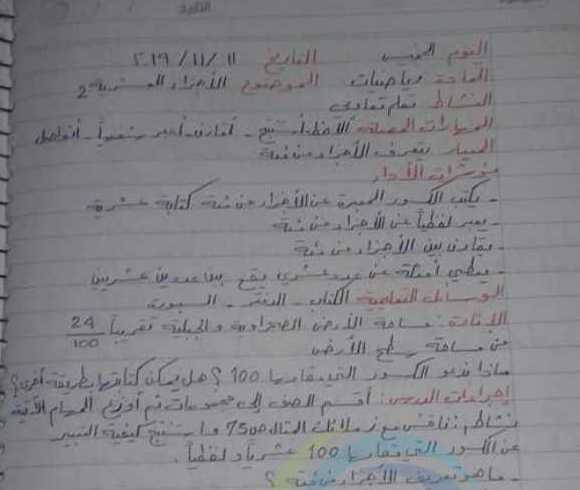 اليوم الخميس التاريخ ٢٠١٩/١١/١١
المادة رياضيات الموضوع الأجزاء العشرية 2
النشاط تعلم تعاوني
المهارات العملية ألاحظ أستنتج - أقارن - أعبر شفوياً - أتواصل
المعيار يتعرف الأجزاء من مئة
مؤشرات الأداء
- يكتب الكسور المعبرة عن الأجزاء من مئة كتابة عشرية
- يعبر لفظياً عن الأجزاء من مئة
- يقارن بين الأجزاء من مئة
- يعطي أمثلة عن عدد عشري يقع بين عددين عشريين
الوسائل التعليمية الكتاب - الدفتر - السبورة
الإثارة: مساحة الأرض الصحراوية والجبلية تقريباً 24/100
من مساحة سطح الأرض
ماذا ندعو الكسور التي مقامها 100؟ هل يمكن كتابتها بطريقة أخرى؟
إجراءات الدرس: أقسم الصف إلى مجموعات ثم أوزع المهام الآتية
نشاط: ناقش مع زملائك المثال ص75 و استنتج كيفية التعبير
عن الكسور التي مقامها 100 عشرياً و لفظياً.
- ما هو تعريف الأجزاء من مئة ؟